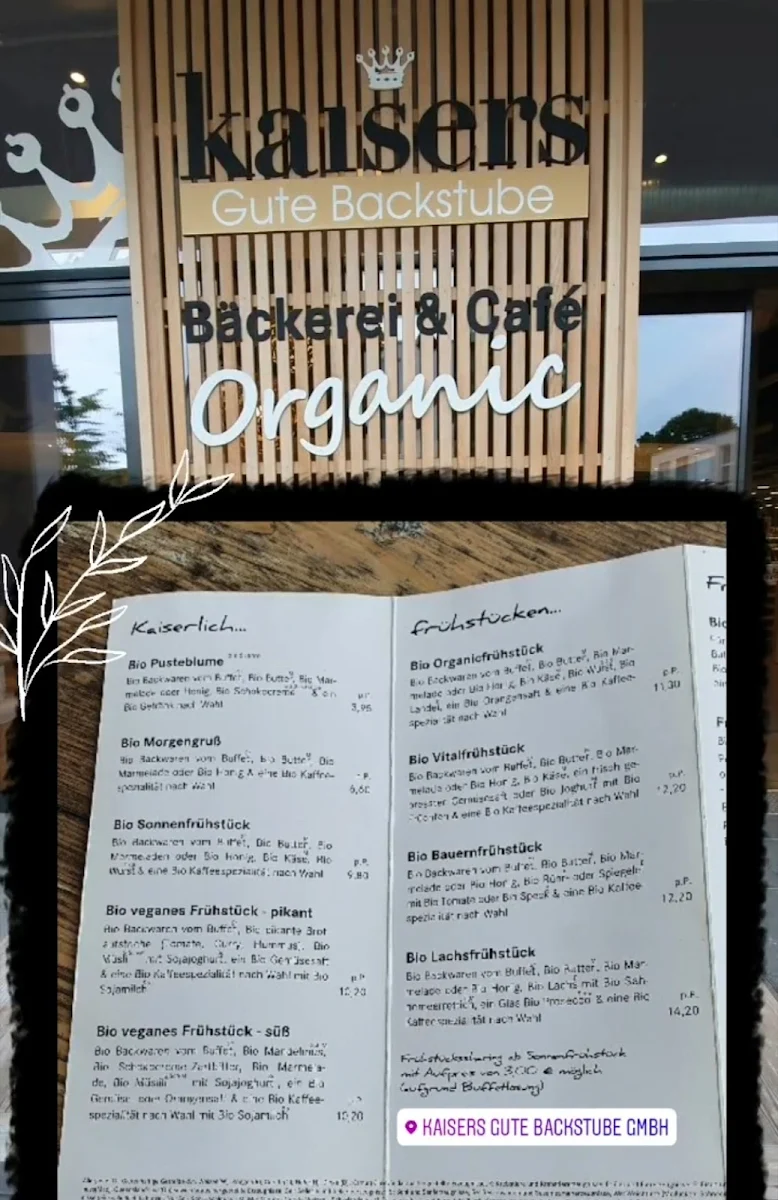 kaisers
Gute Backstube
Bäckerei & Café
Organic
Kaiserlich...
Bio Pusteblume
Bio Backwaren vom Buffet, Bio Butter, Bio Mar-
melade oder Honig, Bio Schokocreme & ein
Bio Getränk nach Wahl
p.P.
3,95
Bio Morgengruß
Bio Backwaren vom Buffet, Bio Butter, Bio
Marmelade oder Bio Honig & eine Bio Kaffee-
spezialität nach Wahl
p.P.
6,60
Bio Sonnenfrühstück
Bio Backwaren vom Buffet, Bio Butter, Bio
Marmeladen oder Bio Honig, Bio Käse, Bio
Wurst & eine Bio Kaffeespezialität nach Wahl
p.P.
9,80
Bio veganes Frühstück - pikant
Bio Backwaren vom Buffet, Bio pikante Brot
aufstriche (Tomate, Curry, Hummus), Bio
Müsli mit Sojajoghurt, ein Bio Gemüsesaft
& eine Bio Kaffeespezialität nach Wahl mit Bio
Sojamilch
p.P.
10,20
Bio veganes Frühstück - süß
Bio Backwaren vom Buffet, Bio Mandelmus,
Bio Schokocreme Zartbitter, Bio Marmela-
de, Bio Müsli mit Sojajoghurt, ein Bio
Gemüse oder Orangensaft & eine Bio Kaffee-
spezialität nach Wahl mit Bio Sojamilch
10,20
Frühstücken...
Bio Organicfrühstück
Bio Backwaren vom Buffet, Bio Butter, Bio Mar-
melade oder Bio Honig, Bio Käse, Bio Wurst, Bio
Landei, ein Bio Orangensaft & eine Bio Kaffee-
spezialität nach Wahl
p.P.
11,30
Bio Vitalfrühstück
Bio Backwaren vom Buffet, Bio Butter, Bio Mar-
melade oder Bio Honig, Bio Käse, ein frisch ge-
presster Gemüsesaft oder Bio Joghurt mit Bio
Früchten & eine Bio Kaffeespezialität nach Wahl
p.P.
12,20
Bio Bauernfrühstück
Bio Backwaren vom Buffet, Bio Butter, Bio Mar-
melade oder Bio Honig, Bio Rühr- oder Spiegelei
mit Bio Tomate oder Bio Speck & eine Bio Kaffee-
spezialität nach Wahl
p.P.
12,20
Bio Lachsfrühstück
Bio Backwaren vom Buffet, Bio Butter, Bio Mar-
melade oder Bio Honig, Bio Lachs mit Bio Sah-
nemeerrettich, ein Glas Bio Prosecco & eine Bio
Kaffeespezialität nach Wahl
p.P.
14,20
Frühstückssharing ab Sonnenfrühstück
mit Aufpreis von 3,00 € möglich
(aufgrund Buffetlösung)
KAISERS GUTE BACKSTUBE GMBH